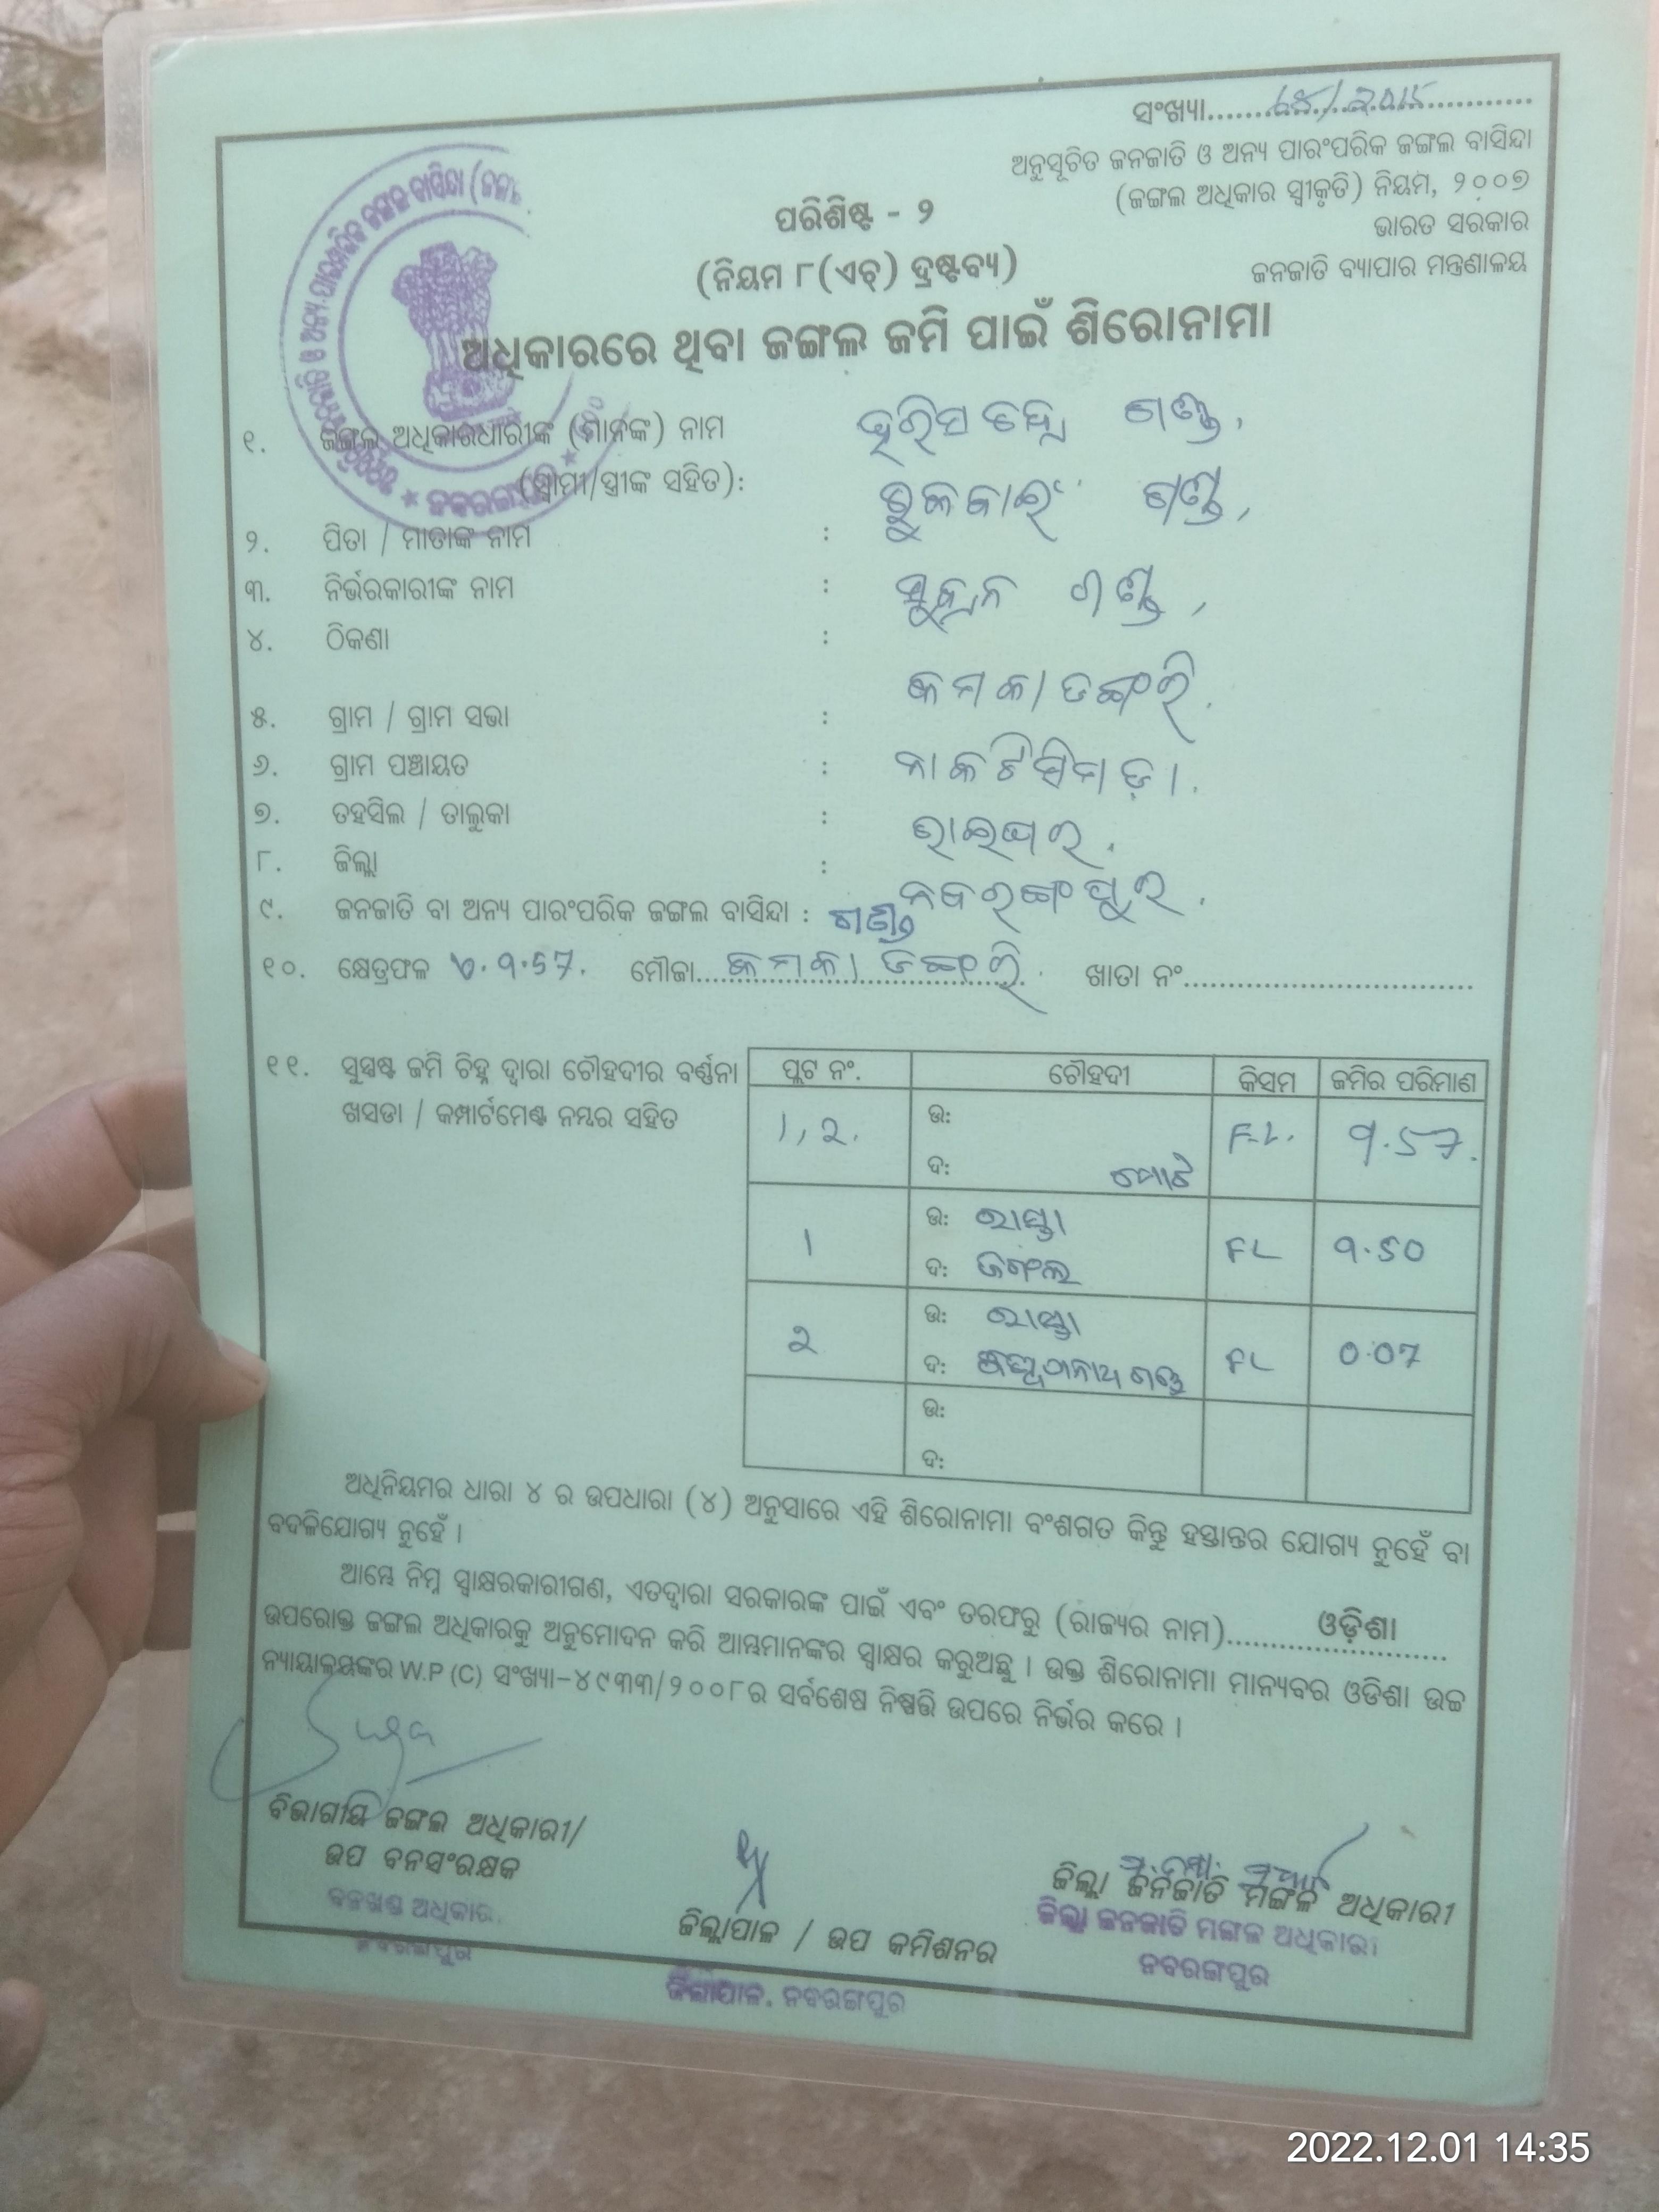 ସଂଖ୍ୟା
ଅନୁସୂଚିତ ଜନଜାତି ଓ ଅନ୍ୟ ପାରଂପରିକ ଜଙ୍ଗଲ ବାସିନ୍ଦା
(ଜଙ୍ଗଲ ଅଧିକାର ସ୍ୱୀକୃତି) ନିୟମ, ୨୦୦୭
ଭାରତ ସରକାର
ଜନଜାତି ବ୍ୟାପାର ମନ୍ତ୍ରଣାଳୟ
ପରିଶିଷ୍ଟ - ୨
(ନିୟମ ୮(ଏଚ୍) ଦ୍ରଷ୍ଟବ୍ୟ)
ଅଧିକାରରେ ଥିବା ଜଙ୍ଗଲ ଜମି ପାଇଁ ଶିରୋନାମା
୧. ଜଙ୍ଗଲ ଅଧିକାରଧାରୀଙ୍କ (ମାନଙ୍କ) ନାମ ଗଣ୍ଡ,
(ସ୍ୱାମୀ/ସ୍ତ୍ରୀଙ୍କ ସହିତ): ଗଣ୍ଡ,
୨. ପିତା / ମାତାଙ୍କ ନାମ :
୩. ନିର୍ଭରକାରୀଙ୍କ ନାମ : ଗଣ୍ଡ,
୪. ଠିକଣା :
୫. ଗ୍ରାମ / ଗ୍ରାମ ସଭା :
୬. ଗ୍ରାମ ପଞ୍ଚାୟତ :
୭. ତହସିଲ / ତାଲୁକା : ରାଇଘର.
୮. ଜିଲ୍ଲା : ନବରଙ୍ଗପୁର.
୯. ଜନଜାତି ବା ଅନ୍ୟ ପାରଂପରିକ ଜଙ୍ଗଲ ବାସିନ୍ଦା : ଗଣ୍ଡ
୧୦. କ୍ଷେତ୍ରଫଳ 9.57. ମୌଜା ଖାତା ନଂ
୧୧. ସୁସ୍ପଷ୍ଟ ଜମି ଚିହ୍ନ ଦ୍ୱାରା ଚୌହଦୀର ବର୍ଣ୍ଣନା
ଖସଡା / କମ୍ପାର୍ଟମେଣ୍ଟ ନମ୍ବର ସହିତ
ପ୍ଲଟ ନଂ. ଚୌହଦୀ କିସମ ଜମିର ପରିମାଣ
1, 2. ଉ: F.L. 9.57.
ଦ: ମୋଟ
1 ଉ: ରାସ୍ତା FL 9.50
ଦ: ଜଙ୍ଗଲ
2 ଉ: ରାସ୍ତା FL 0.07
ଦ: ଗଣ୍ଡ
ଉ:
ଦ:
ଅଧିନିୟମର ଧାରା ୪ ର ଉପଧାରା (୪) ଅନୁସାରେ ଏହି ଶିରୋନାମା ବଂଶଗତ କିନ୍ତୁ ହସ୍ତାନ୍ତର ଯୋଗ୍ୟ ନୁହେଁ ବା
ବଦଳିଯୋଗ୍ୟ ନୁହେଁ ।
ଆମ୍ଭେ ନିମ୍ନ ସ୍ୱାକ୍ଷରକାରୀଗଣ, ଏତଦ୍ୱାରା ସରକାରଙ୍କ ପାଇଁ ଏବଂ ତରଫରୁ (ରାଜ୍ୟର ନାମ) ଓଡ଼ିଶା
ଉପରୋକ୍ତ ଜଙ୍ଗଲ ଅଧିକାରକୁ ଅନୁମୋଦନ କରି ଆମ୍ଭମାନଙ୍କର ସ୍ୱାକ୍ଷର କରୁଅଛୁ । ଉକ୍ତ ଶିରୋନାମା ମାନ୍ୟବର ଓଡିଶା ଉଚ୍ଚ
ନ୍ୟାୟାଳୟଙ୍କର W.P (C) ସଂଖ୍ୟା-୪୯୩୩/୨୦୦୮ର ସର୍ବଶେଷ ନିଷ୍ପତ୍ତି ଉପରେ ନିର୍ଭର କରେ ।
ବିଭାଗୀୟ ଜଙ୍ଗଲ ଅଧିକାରୀ/
ଉପ ବନସଂରକ୍ଷକ
ବନଖଣ୍ଡ ଅଧିକାରୀ
ନବରଙ୍ଗପୁର
ଜିଲ୍ଲାପାଳ / ଉପ କମିଶନର
ଜିଲ୍ଲାପାଳ, ନବରଙ୍ଗପୁର
ଜିଲ୍ଲା ଜନଜାତି ମଙ୍ଗଳ ଅଧିକାରୀ
ଜିଲ୍ଲା ଜନଜାତି ମଙ୍ଗଳ ଅଧିକାରୀ
ନବରଙ୍ଗପୁର
2022.12.01 14:35